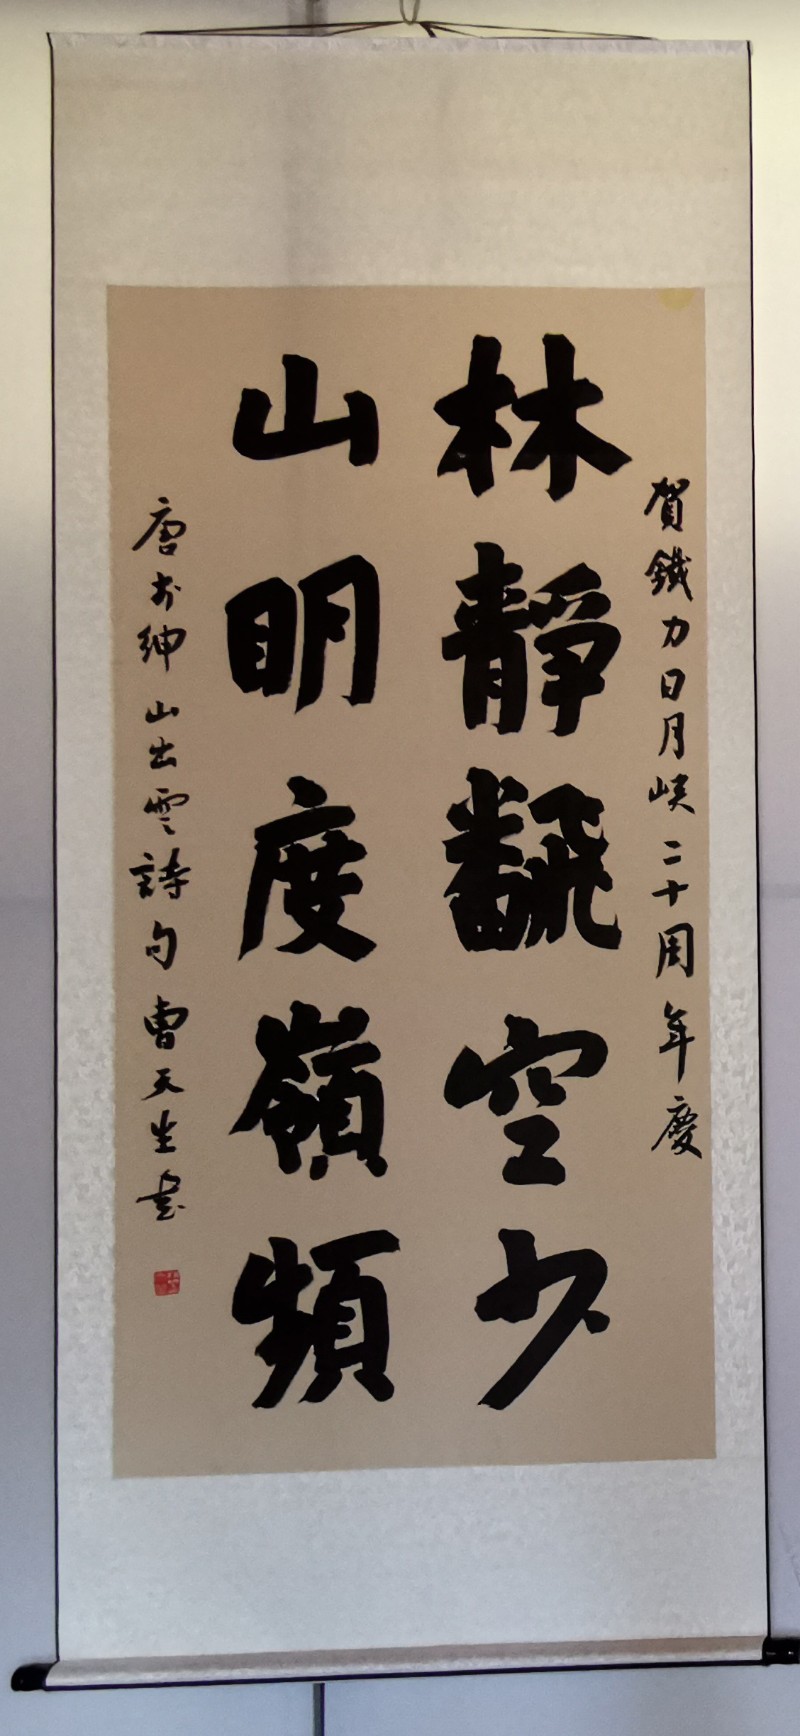 賀鐵力日月峽二十周年慶
林靜飜空少
山明度嶺頻
唐于紳山出雲詩句曹天生書